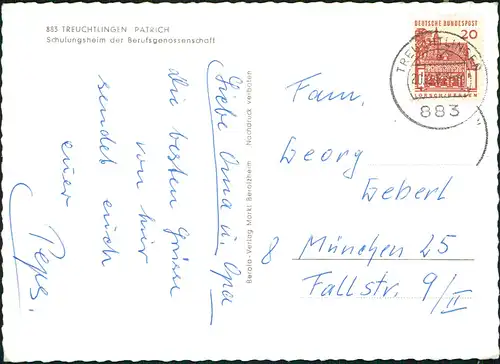 883 TREUCHTLINGEN PATRICH
Schulungsheim der Berufsgenossenschaft
Liebe Oma u. Opa
die besten Grüße
von hier
sendet euch
euer Peps.
Berola-Verlag Markt Berolzheim Nachdruck verboten
DEUTSCHE BUNDESPOST
20
LORSCH/HESSEN
TREUCHTLINGEN
883
Fam.
Georg
Gebert
8 München 25
Fallstr. 9/II